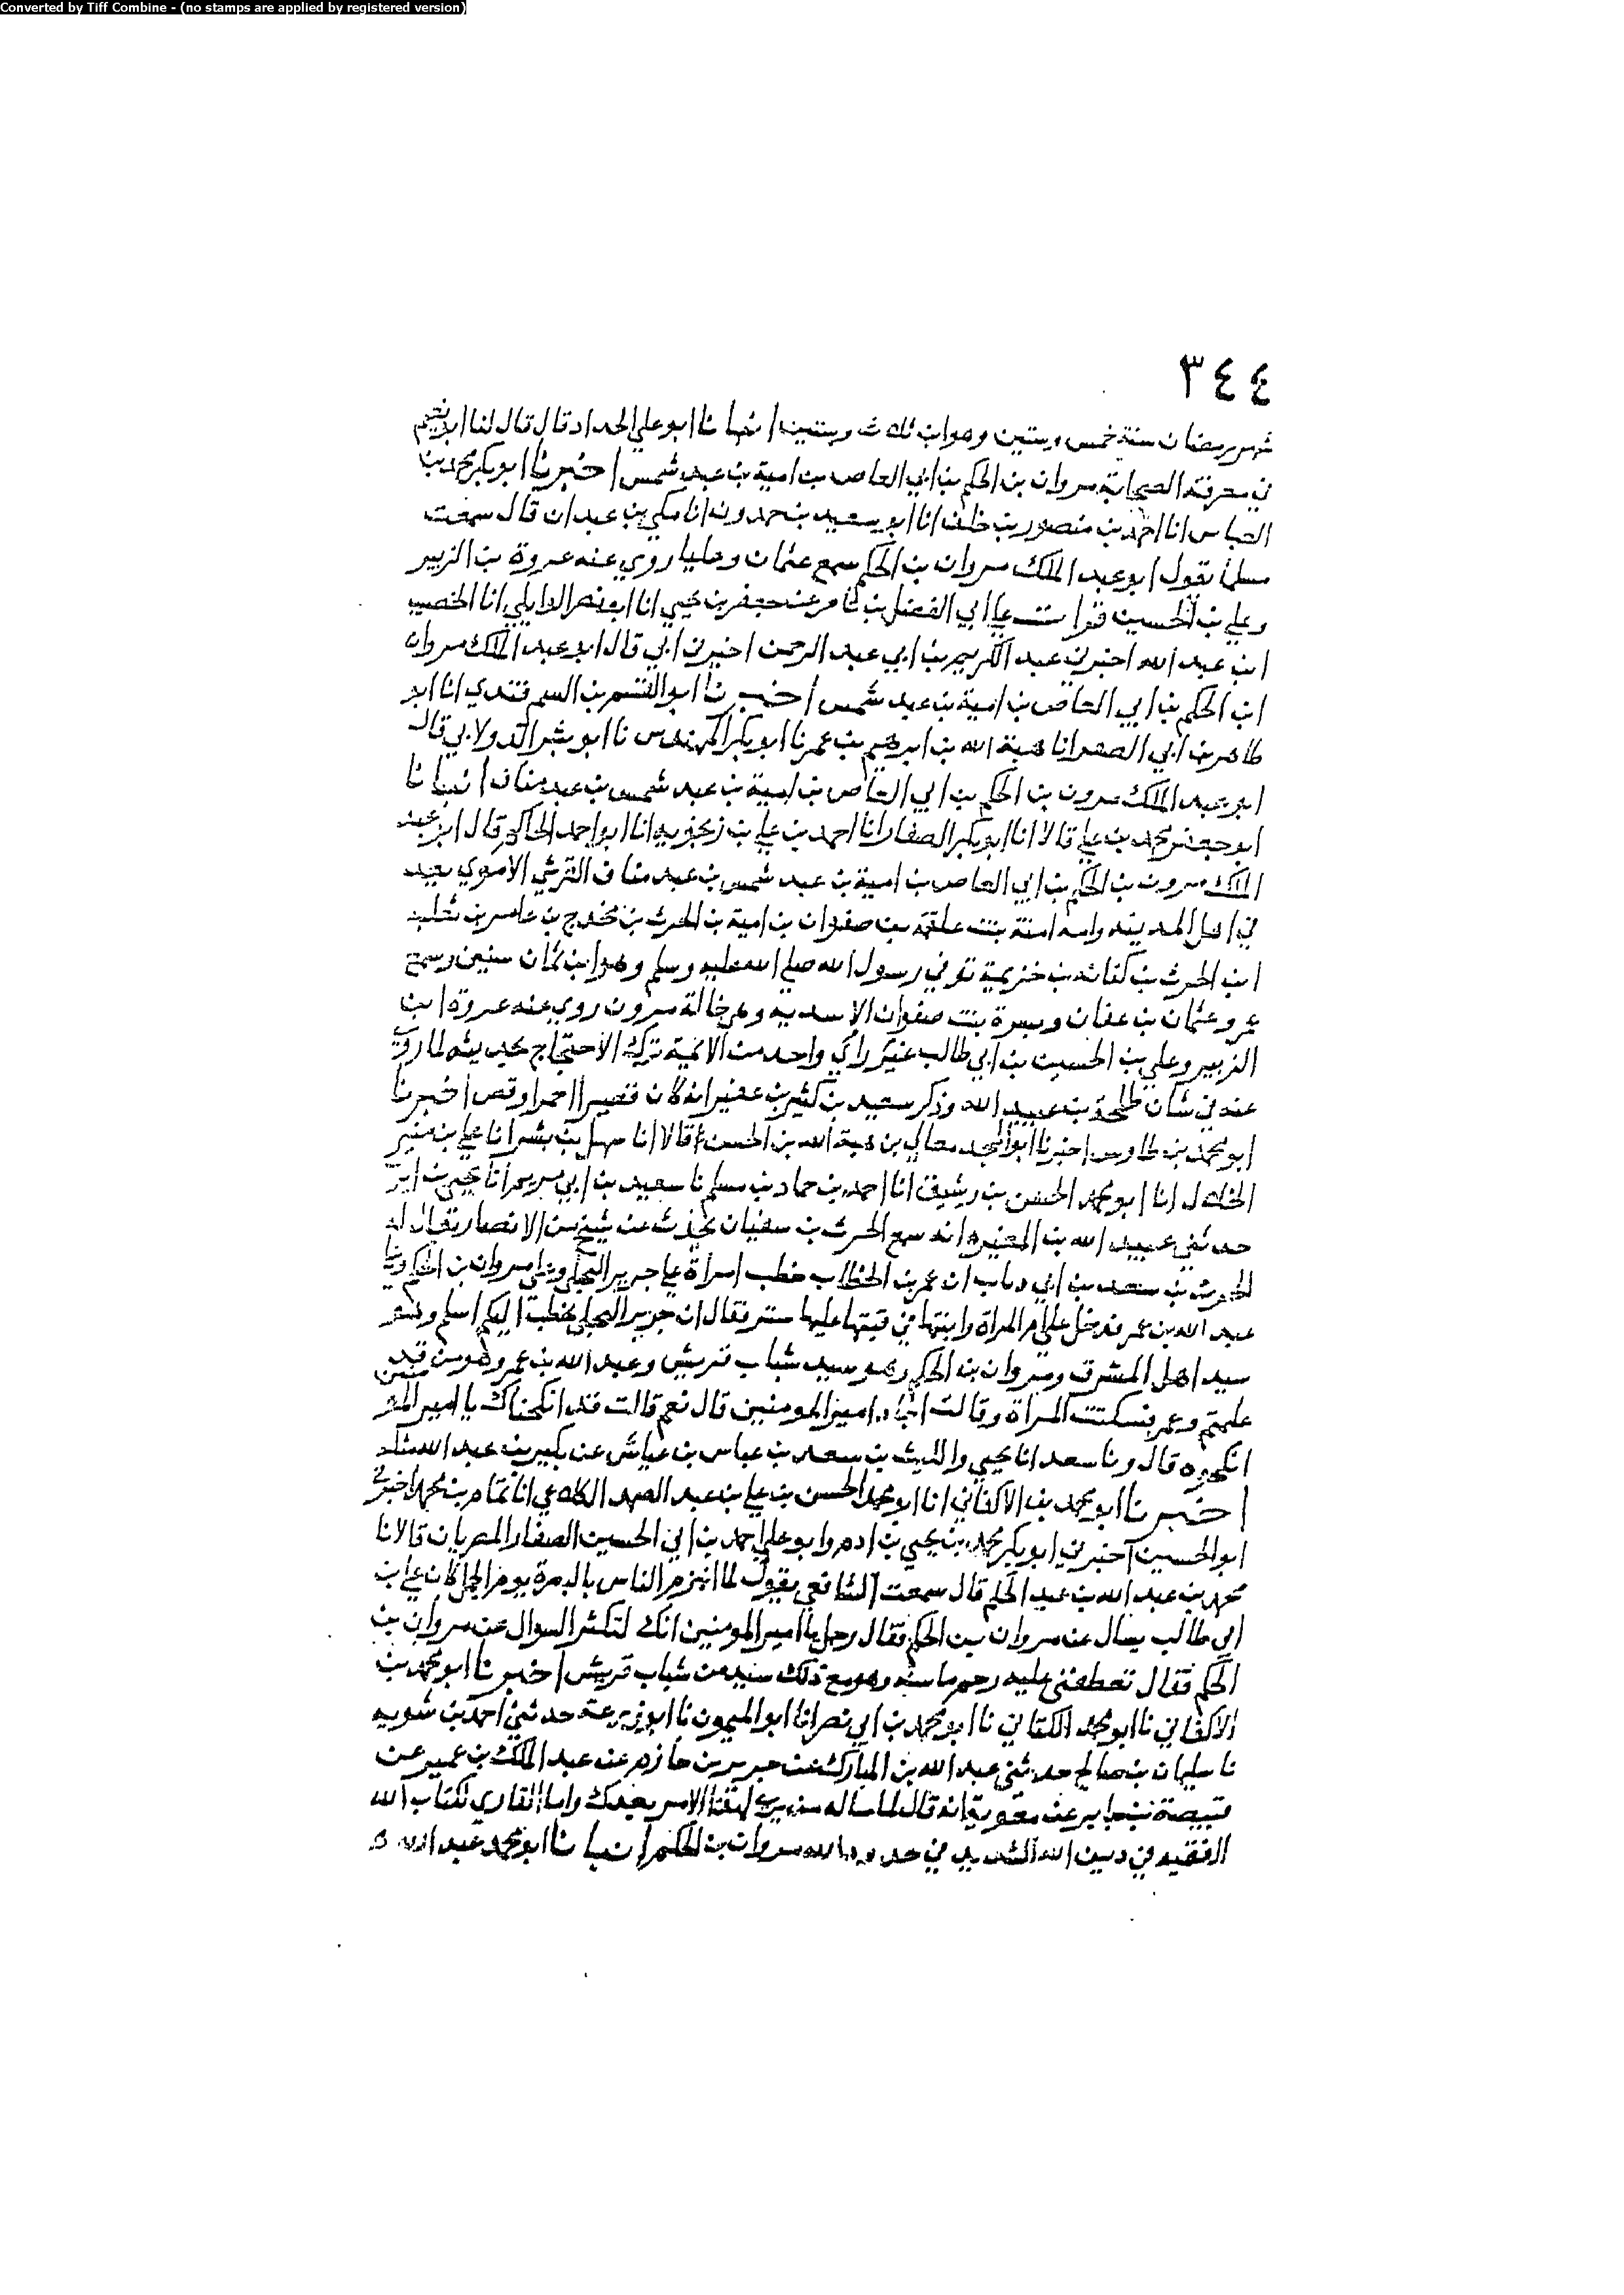 Converted by Tiff Combine - (no stamps are applied by registered version)
٣٤٤
شهر رمضان سنة خمس وستين وهو ابن ثلاث وستين انبانا ابو علي الحداد قال قال لنا ابو نعيم
في معرفة الصحابة مروان بن الحكم بن ابي العاص بن امية بن عبد شمس اخبرنا ابو بكر محمد بن
العباس انا احمد بن منصور بن خلف انا ابو سعيد بن حمدون انا مكي بن عبدان قال سمعت
مسلما يقول ابو عبد الملك مروان بن الحكم سمع عثمان وعليا روي عنه عروة بن الزبير
وعلي بن الحسين قرات علي ابي الفضل بن ناصر عن جعفر بن يحيي انا ابو نصر الوايلي انا الخصيب
ابن عبد الله اخبرني عبد الكريم بن ابي عبد الرحمن اخبرني ابي قال ابو عبد الملك مروان
ابن الحكم بن ابي العاص بن امية بن عبد شمس اخبرنا ابو القسم بن السمرقندي انا ابو
طاهر بن ابي الصقر انا هبة الله بن ابرهيم بن عمر نا ابو بكر المهندس نا ابو بشر الدولابي قال
ابو عبد الملك مرون بن الحكم بن ابي العاص بن امية بن عبد شمس بن عبد مناف انبانا
ابو جعفر محمد بن علي قالا انا ابو بكر الصفار انا احمد بن علي بن زنجويه انا ابو احمد الحاكم قال ابو عبد
الملك مرون بن الحكم بن ابي العاص بن امية بن عبد شمس بن عبد مناف القرشي الاموي يعد
في اهل المدينه وامه امنة بنت علقمة بن صفوان بن امية بن الحرث بن مخدج بن عامر بن ثعلب
ابن الحرث بن كنانه بن خزيمة توفي رسول الله صلي الله عليه وسلم وهو ابن ثمان سنين وسمع
عمر وعثمان بن عفان وبسرة بنت صفوان الاسديه وهي خالة مرون روي عنه عروة ابن
الزبير وعلي بن الحسين بن ابي طالب غير راي واحد من الائمة ترك الاحتجاج بحديثه لما روي
عنه في شان طلحة بن عبيد الله وذكر سعيد بن كثير بن عفير انه كان قصيرا احمر اوقص اخبرنا
ابو محمد بن طاوس اخبرنا ابو المجد معالي بن هبة الله بن الحسن قالا انا سهل بن بشر انا علي بن منير
الخلال انا ابو محمد الحسن بن رشيق انا احمد بن حماد بن مسلم نا سعيد بن ابي مريم انا يحيي بن ايو
حدثني عبيد الله بن المغيره انه سمع الحرث بن سفيان يحدث عن شيخ من الانصار يقال له
الحرث بن سعد بن ابي ذباب ان عمر بن الخطاب خطب امراة علي جرير البجلي وعلي مروان بن الحكم وعلي
عبد الله بن عمر فدخل علي المراة وابنتها في قبتها عليها ستر فقال ان جرير البجلي يخطب اليكم اسلم وهو
سيد اهل المشرق ومروان بن الحكم وهو سيد شباب قريش وعبد الله بن عمر وهو من قد
علمتم وعمر فسكتت المراة وقالت اجاد امير المومنين قال نعم قالت فقد انكحناك يا امير المومنين
انكحوه قال ونا سعد انا يحيي والليث بن سعد بن عباس بن عياش عن بكير بن عبد الله مثله
اخبرنا ابو محمد بن الاكفاني انا ابو محمد الحسن بن علي بن عبد الصمد الكلاعي انا تمام بن محمد اخبرني
ابو الحسين اخبرني ابو بكر محمد بن يحيي بن ادم وابو علي احمد بن ابي الحسين الصفار المصريان قالا نا
محمد بن عبد الله بن عبد الحكم قال سمعت الشافعي يقول لما انهزم الناس بالبصرة يوم الجمل كان علي بن
ابي طالب يسال عن مروان بن الحكم فقال رجل يا امير المومنين انك لتكثر السوال عن مروان بن
الحكم فقال تعطفني عليه رحم ماسة وهو مع ذلك سيد من شباب قريش اخبرنا ابو محمد بن
الاكفاني نا ابو محمد الكتاني نا ابو محمد بن ابي نصر انا ابو الميمون نا ابو زرعة حدثني احمد بن شبويه
نا سليمان بن صالح حدثني عبد الله بن المبارك عن جرير بن حازم عن عبد الملك بن عمير عن
قبيصة بن جابر عن معوية انه قال لما ساله من يري لهذا الامر بعدك واما القاري لكتاب الله
الفقيه في دين الله الشديد في حدود الله مروان بن الحكم انبانا ابو محمد عبد الله